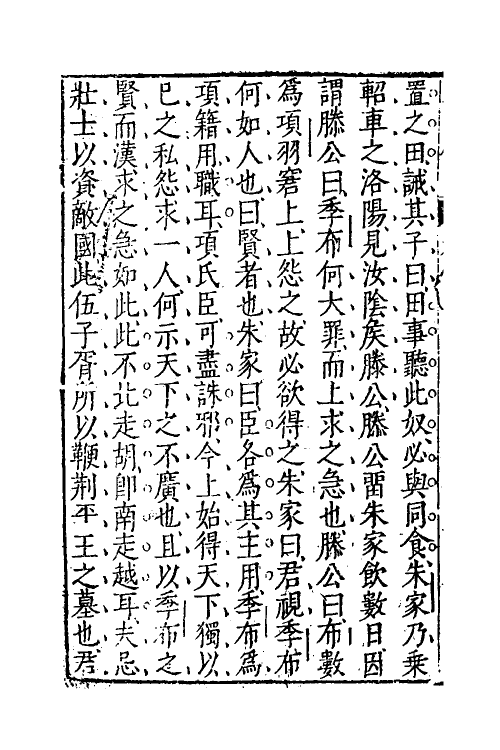 置之田誡其子曰田事聽此奴必與同食朱家乃乗
軺車之洛陽見汝陰矦滕公滕公畱朱家飲數日因
謂滕公曰季布何大罪而上求之急也滕公曰布數
爲項羽窘上上怨之故必欲得之朱家曰君視季布
何如人也曰賢者也朱家曰臣各爲其主用季布爲
項籍用職耳項氏臣可盡誅邪今上始得天下獨以
已之私怨求一人何示天下之不廣也且以季布之
賢而漢求之急如此此不北走胡卽南走越耳夫忌
壯士以資敵國此伍子胥所以鞭荆平王之墓也君